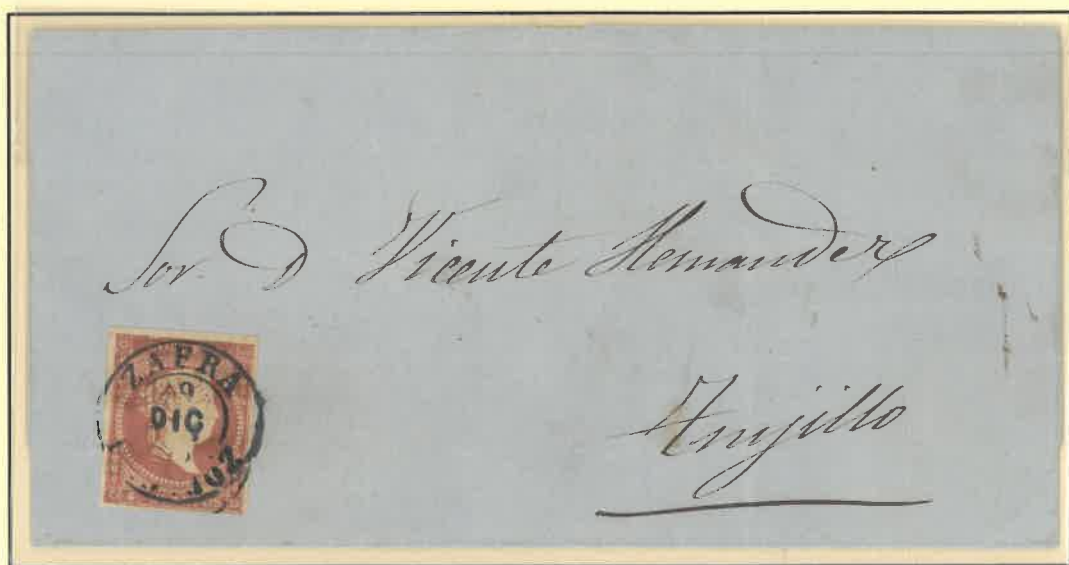 Sor. D Vicente Hernandez
Trujillo
ZAFRA
DIC